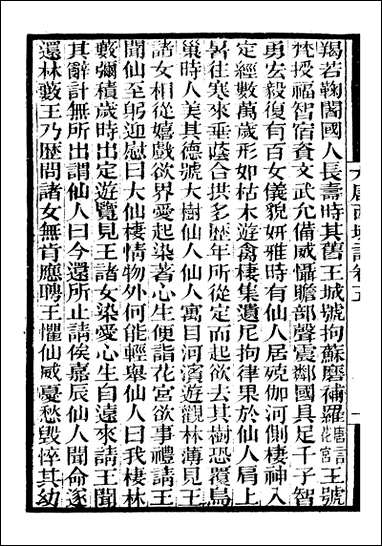 大唐西域記卷五
一
羯若鞠闍國人長壽時其舊王城號拘蘇磨補羅唐言花宮王號
梵授福智宿資文武允備威懾贍部聲震鄰國具足千子智
勇宏毅復有百女儀貌妍雅時有仙人居殑伽河側棲神入
定經數萬歲形如枯木遊禽棲集遺尼拘律果於仙人肩上
暑往寒來垂蔭合拱多歷年所從定而起欲去其樹恐覆鳥
巢時人美其德號大樹仙人仙人寓目河濱遊觀林薄見王
諸女相從嬉戲欲界愛起染著心生便詣花宮欲事禮請王
聞仙至躬迎慰曰大仙棲情物外何能輕舉仙人曰我棲林
藪彌積歲時出定遊覽見王諸女染愛心生自遠來請王聞
其辭計無所出謂仙人曰今還所止請俟嘉辰仙人聞命遂
還林藪王乃歷問諸女無肯應聘王懼仙威憂愁毀悴其幼